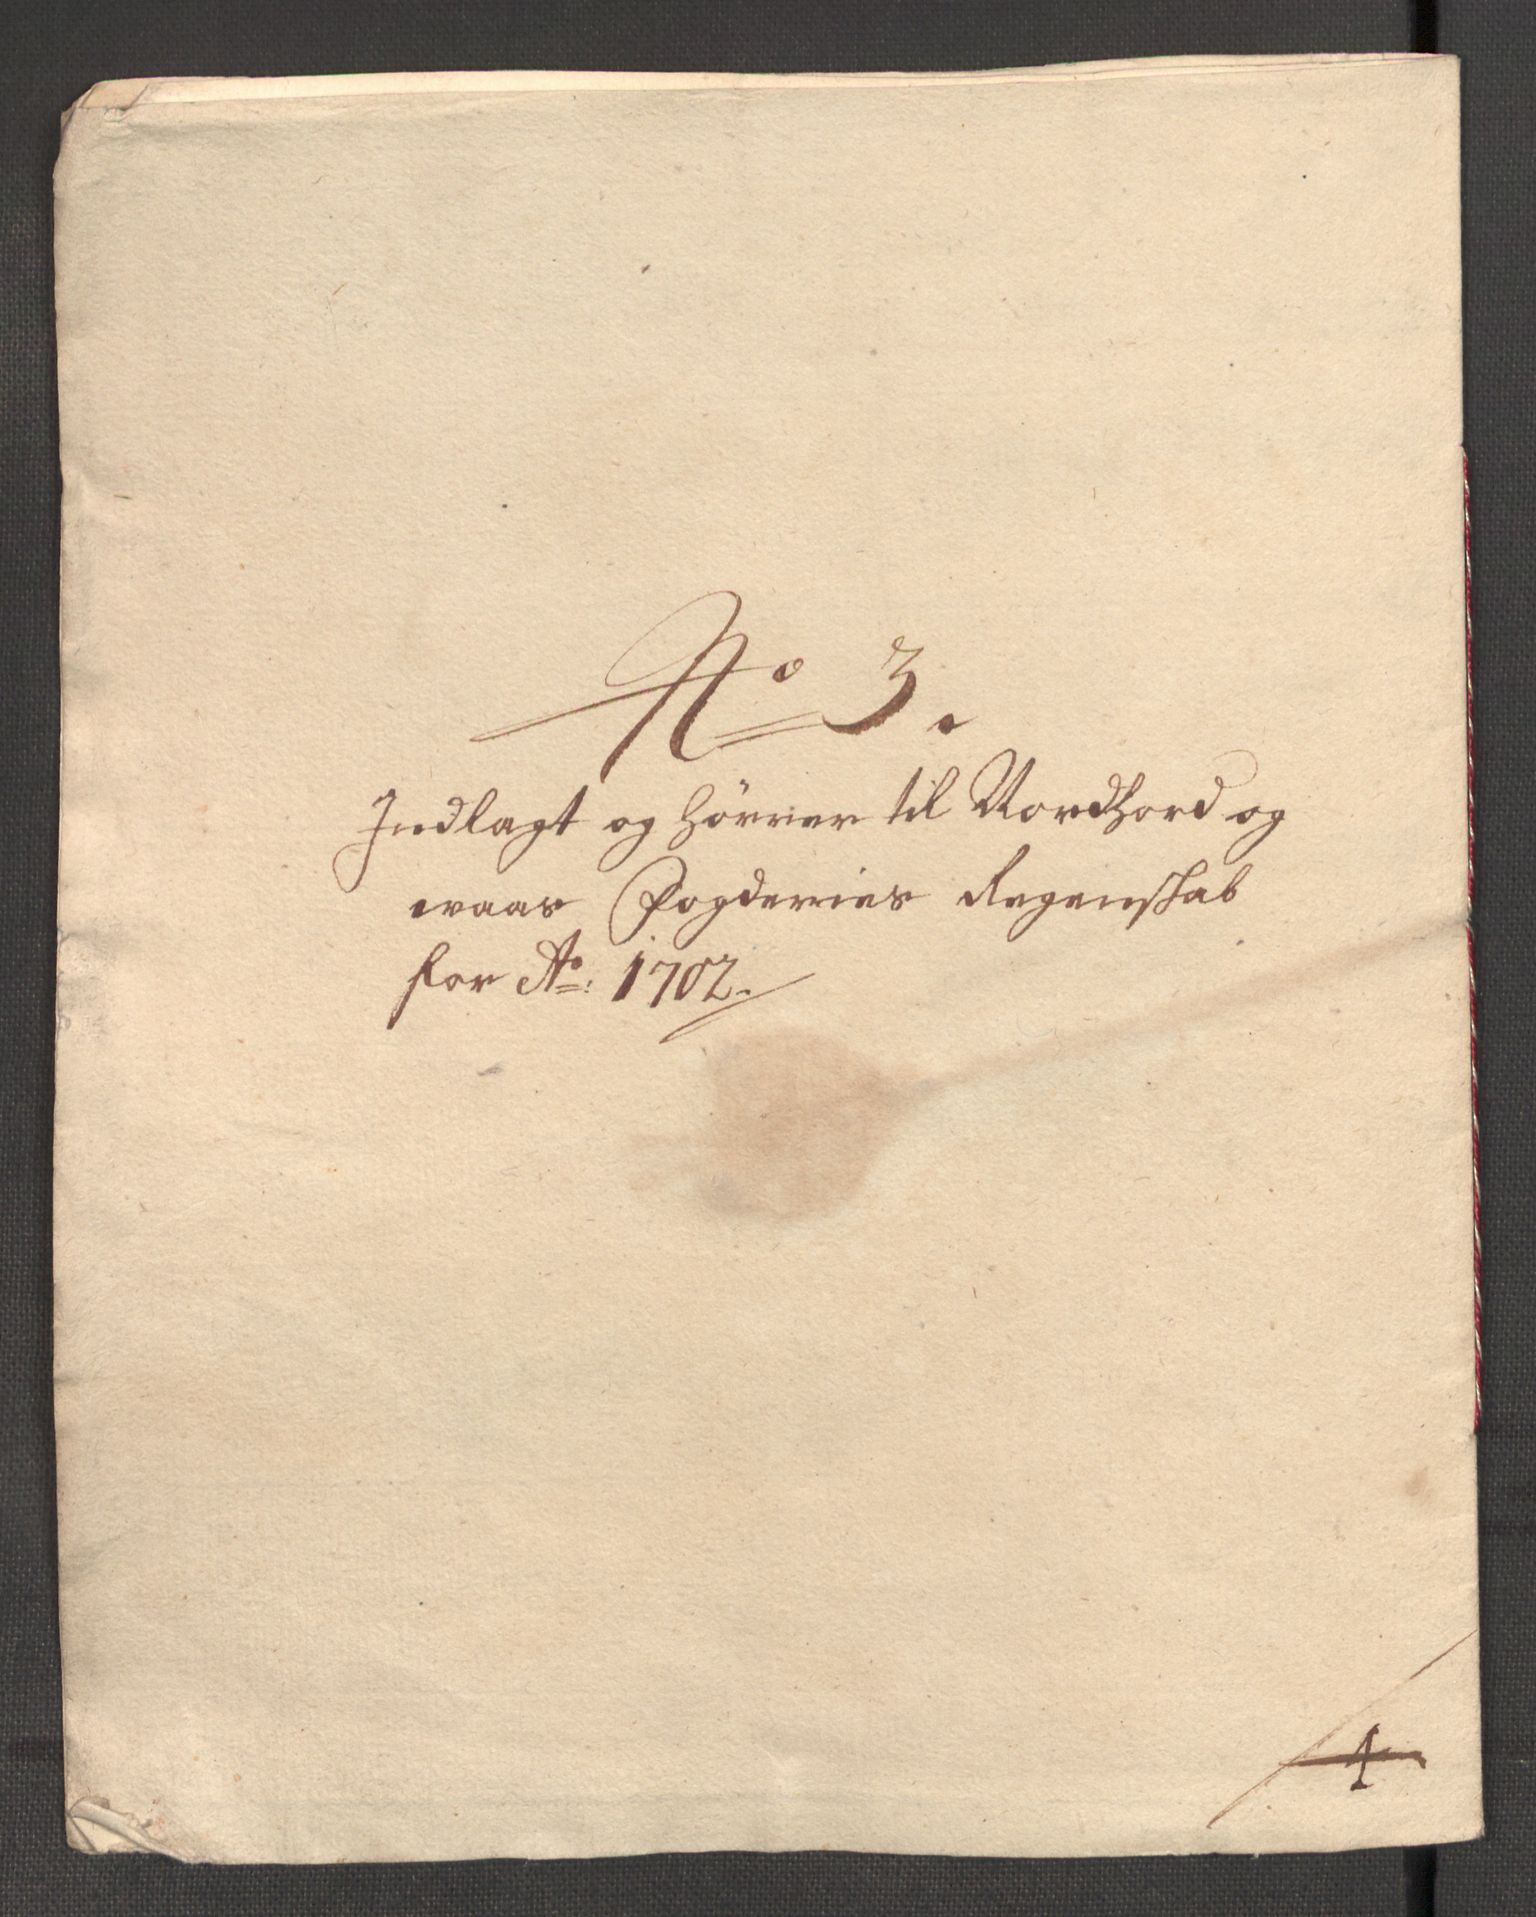 No 3.
Indlagt og hörrer til Nordhord og
waas Fogderies Regenskab
for Ao: 1702.
4